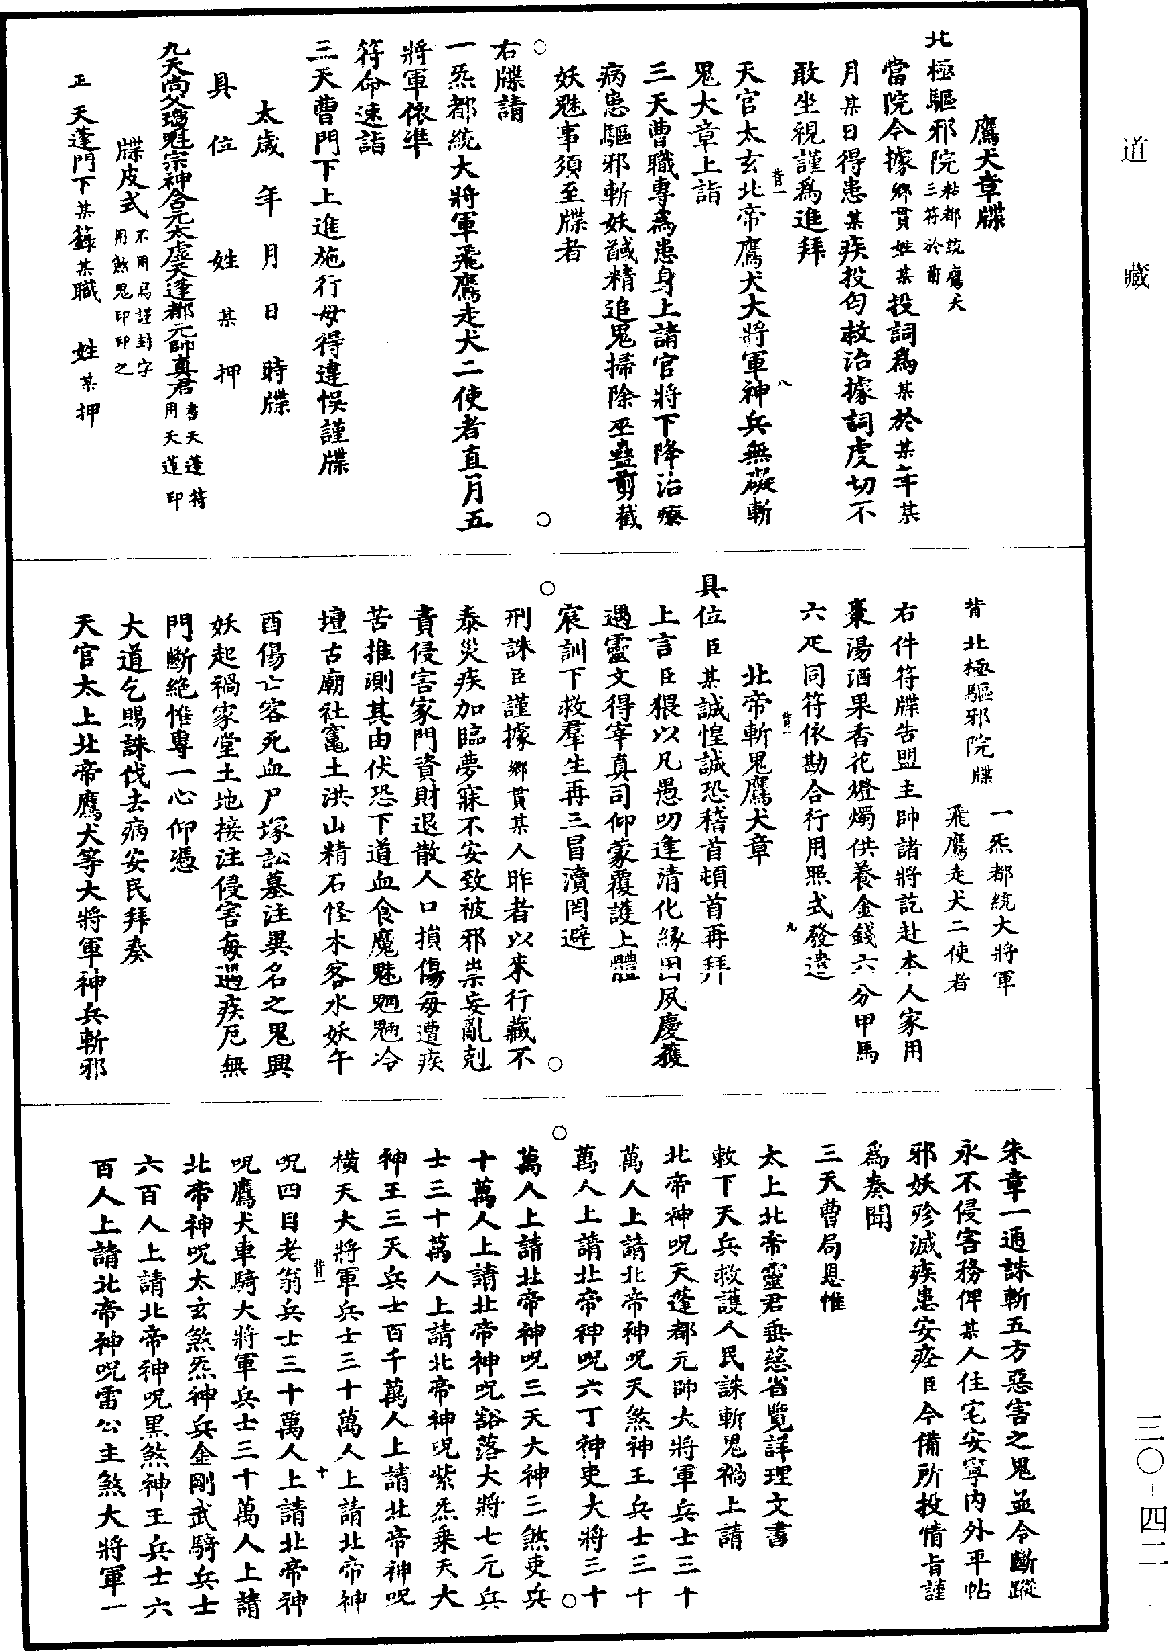 道藏
三〇-四二
鷹犬章牒
北極驅邪院粘都統鷹犬三符於前
當院今據鄉貫姓某投詞為某於某年某
月某日得患某疾投匄救治據詞虔切不
敢坐視謹為進拜
天官太玄北帝鷹犬大將軍神兵無礙斬
鬼大章上詣
三天曹職專為患身上請官將下降治療
病患驅邪斬妖馘精追鬼掃除巫蠱剪截
妖魅事須至牒者
右牒請
一炁都統大將軍飛鷹走犬二使者直月五
將軍依準
符命速詣
三天曹門下上進施行毋得違悞謹牒
太歲年月日時牒
具位姓某押
九天尚父璓魁宗神合元太虛天蓬都元帥真君書天蓬符用天蓬印
牒皮式不用為謹封字用煞鬼印印之
正天蓬門下某籙某職姓某押
背北極驅邪院牒
一炁都統大將軍
飛鷹走犬二使者
右件符牒告盟主帥諸將訖赴本人家用
棗湯酒果香花燈燭供養金錢六分甲馬
六疋同符依勘合行用照式發遣
北帝斬鬼鷹犬章
具位臣某誠惶誠恐稽首頓首再拜
上言臣猥以凡愚叨逢清化緣因夙慶獲
遇靈文得宰真司仰蒙覆護上體
宸訓下救羣生再三冒瀆罔避
刑誅臣謹據鄉貫某人昨者以來行藏不
泰災疾加臨夢寐不安致被邪祟妄亂剋
責侵害家門資財退散人口損傷每遭疾
苦推測其由伏恐下道血食魔魅魍魎冷
壇古廟社竈土洪山精石怪木客水妖午
酉傷亡客死血尸塚訟墓注異名之鬼興
妖起禍家堂土地接注侵害每遇疾厄無
門斷絶惟專一心仰憑
大道乞賜誅伐去病安民拜奏
天官太上北帝鷹犬等大將軍神兵斬邪
朱章一通誅斬五方惡害之鬼並令斷蹤
永不侵害務俾某人住宅安寧內外平帖
邪妖殄滅疾患安痊臣今備所投情旨謹
為奏聞
三天曹局恩惟
太上北帝靈君垂慈省覽詳理文書
敕下天兵救護人民誅斬鬼禍上請
北帝神呪天蓬都元帥大將軍兵士三十
萬人上請北帝神呪天煞神王兵士三十
萬人上請北帝神呪六丁神吏大將三十
萬人上請北帝神呪三天大神二煞吏兵
十萬人上請北帝神呪豁落大將七元兵
士三十萬人上請北帝神呪紫炁乘天大
神王三天兵士百千萬人上請北帝神呪
橫天大將軍兵士三十萬人上請北帝神
呪四目老翁兵士三十萬人上請北帝神
呪鷹犬車騎大將軍兵士三十萬人上請
北帝神呪太玄煞炁神兵金剛武騎兵士
六百人上請北帝神呪黑煞神王兵士六
百人上請北帝神呪雷公主煞大將軍一